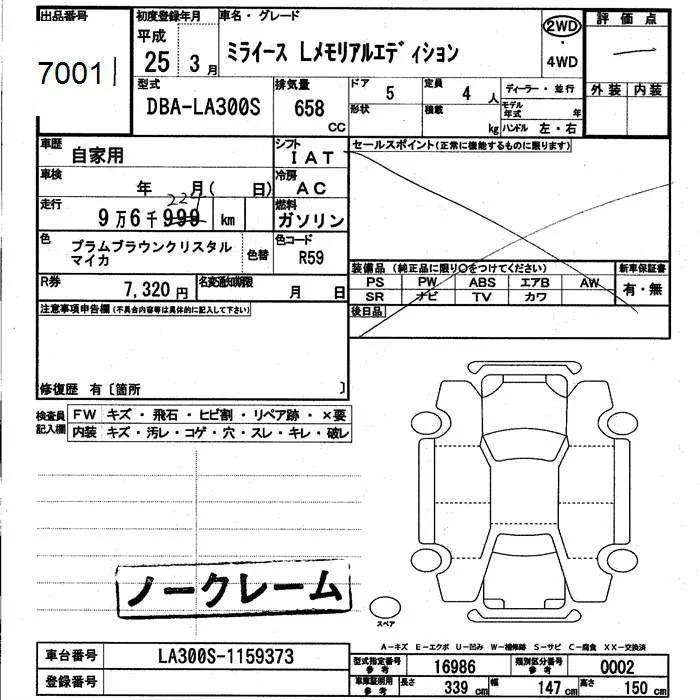 出品番号
7001
初度登録年月
平成
25 3 月
車名・グレード
ミライース Lメモリアルエディション
2WD
・
4WD
評 価 点
外 装 内 装
型式
DBA-LA300S
排気量
658
CC
ドア
5
定員
4 人
形状
積載
kg
ディーラー・並行
モデル
年式 年
ハンドル 左・右
車歴
自家用
シフト
IAT
セールスポイント(正常に機能するものに限ります)
車検
年 月( 日)
冷房
AC
走行
9 万 6 千 999 km
燃料
ガソリン
色
プラムブラウンクリスタル
マイカ
色替
色コード
R59
装備品 (純正品に限り○をつけてください)
新車保証書
PS PW ABS エアB AW
有・無
SR ナビ TV カワ
R券
7,320 円
名変通知期限
月 日
後日品
注意事項申告欄(不具合内容等は具体的に記入して下さい)
修復歴 有〔箇所 〕
検査員
記入欄
FW キズ・飛石・ヒビ割・リペア跡・×要
内装 キズ・汚レ・コゲ・穴・スレ・キレ・破レ
ノークレーム
スペア
A-キズ E-エクボ U-凹み W-補修跡 S-サビ C-腐食 XX-交換済
車台番号
LA300S-1159373
登録番号
型式指定番号
参 考
16986
類別区分番号
参 考
0002
車庫証明用
参 考
長さ 339 cm 幅 147 cm 高さ 150 cm